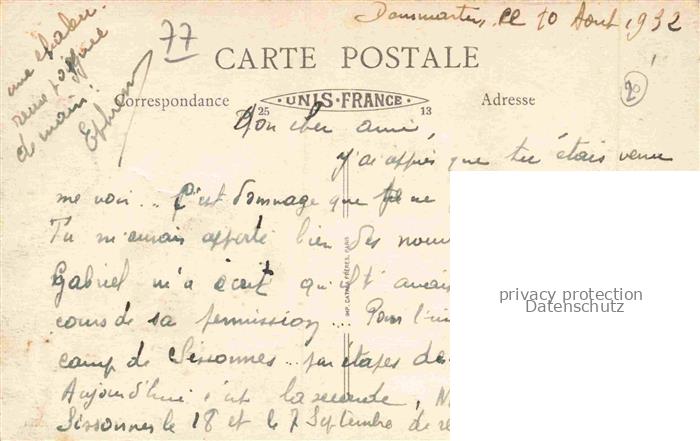 Dammartin, le 10 Août 1932
77
CARTE POSTALE
20
Correspondance UNIS-FRANCE Adresse
25 13
Mon cher ami,
J'ai appris que tu étais venu
me voir... C'est dommage que je ne
Tu m'aurais apporté bien des nouv
Gabriel m'a écrit qu'il t'avais
cours de sa permission... Pour l'in
camp de Sissonnes... par étapes de
Aujourd'hui c'est la seconde, N
Sissonnes le 18 et le 7 Septembre de re
une chaleu-
reuse poignée
de main!
IMP. CATALA FRÈRES, PARIS
privacy protection
Datenschutz